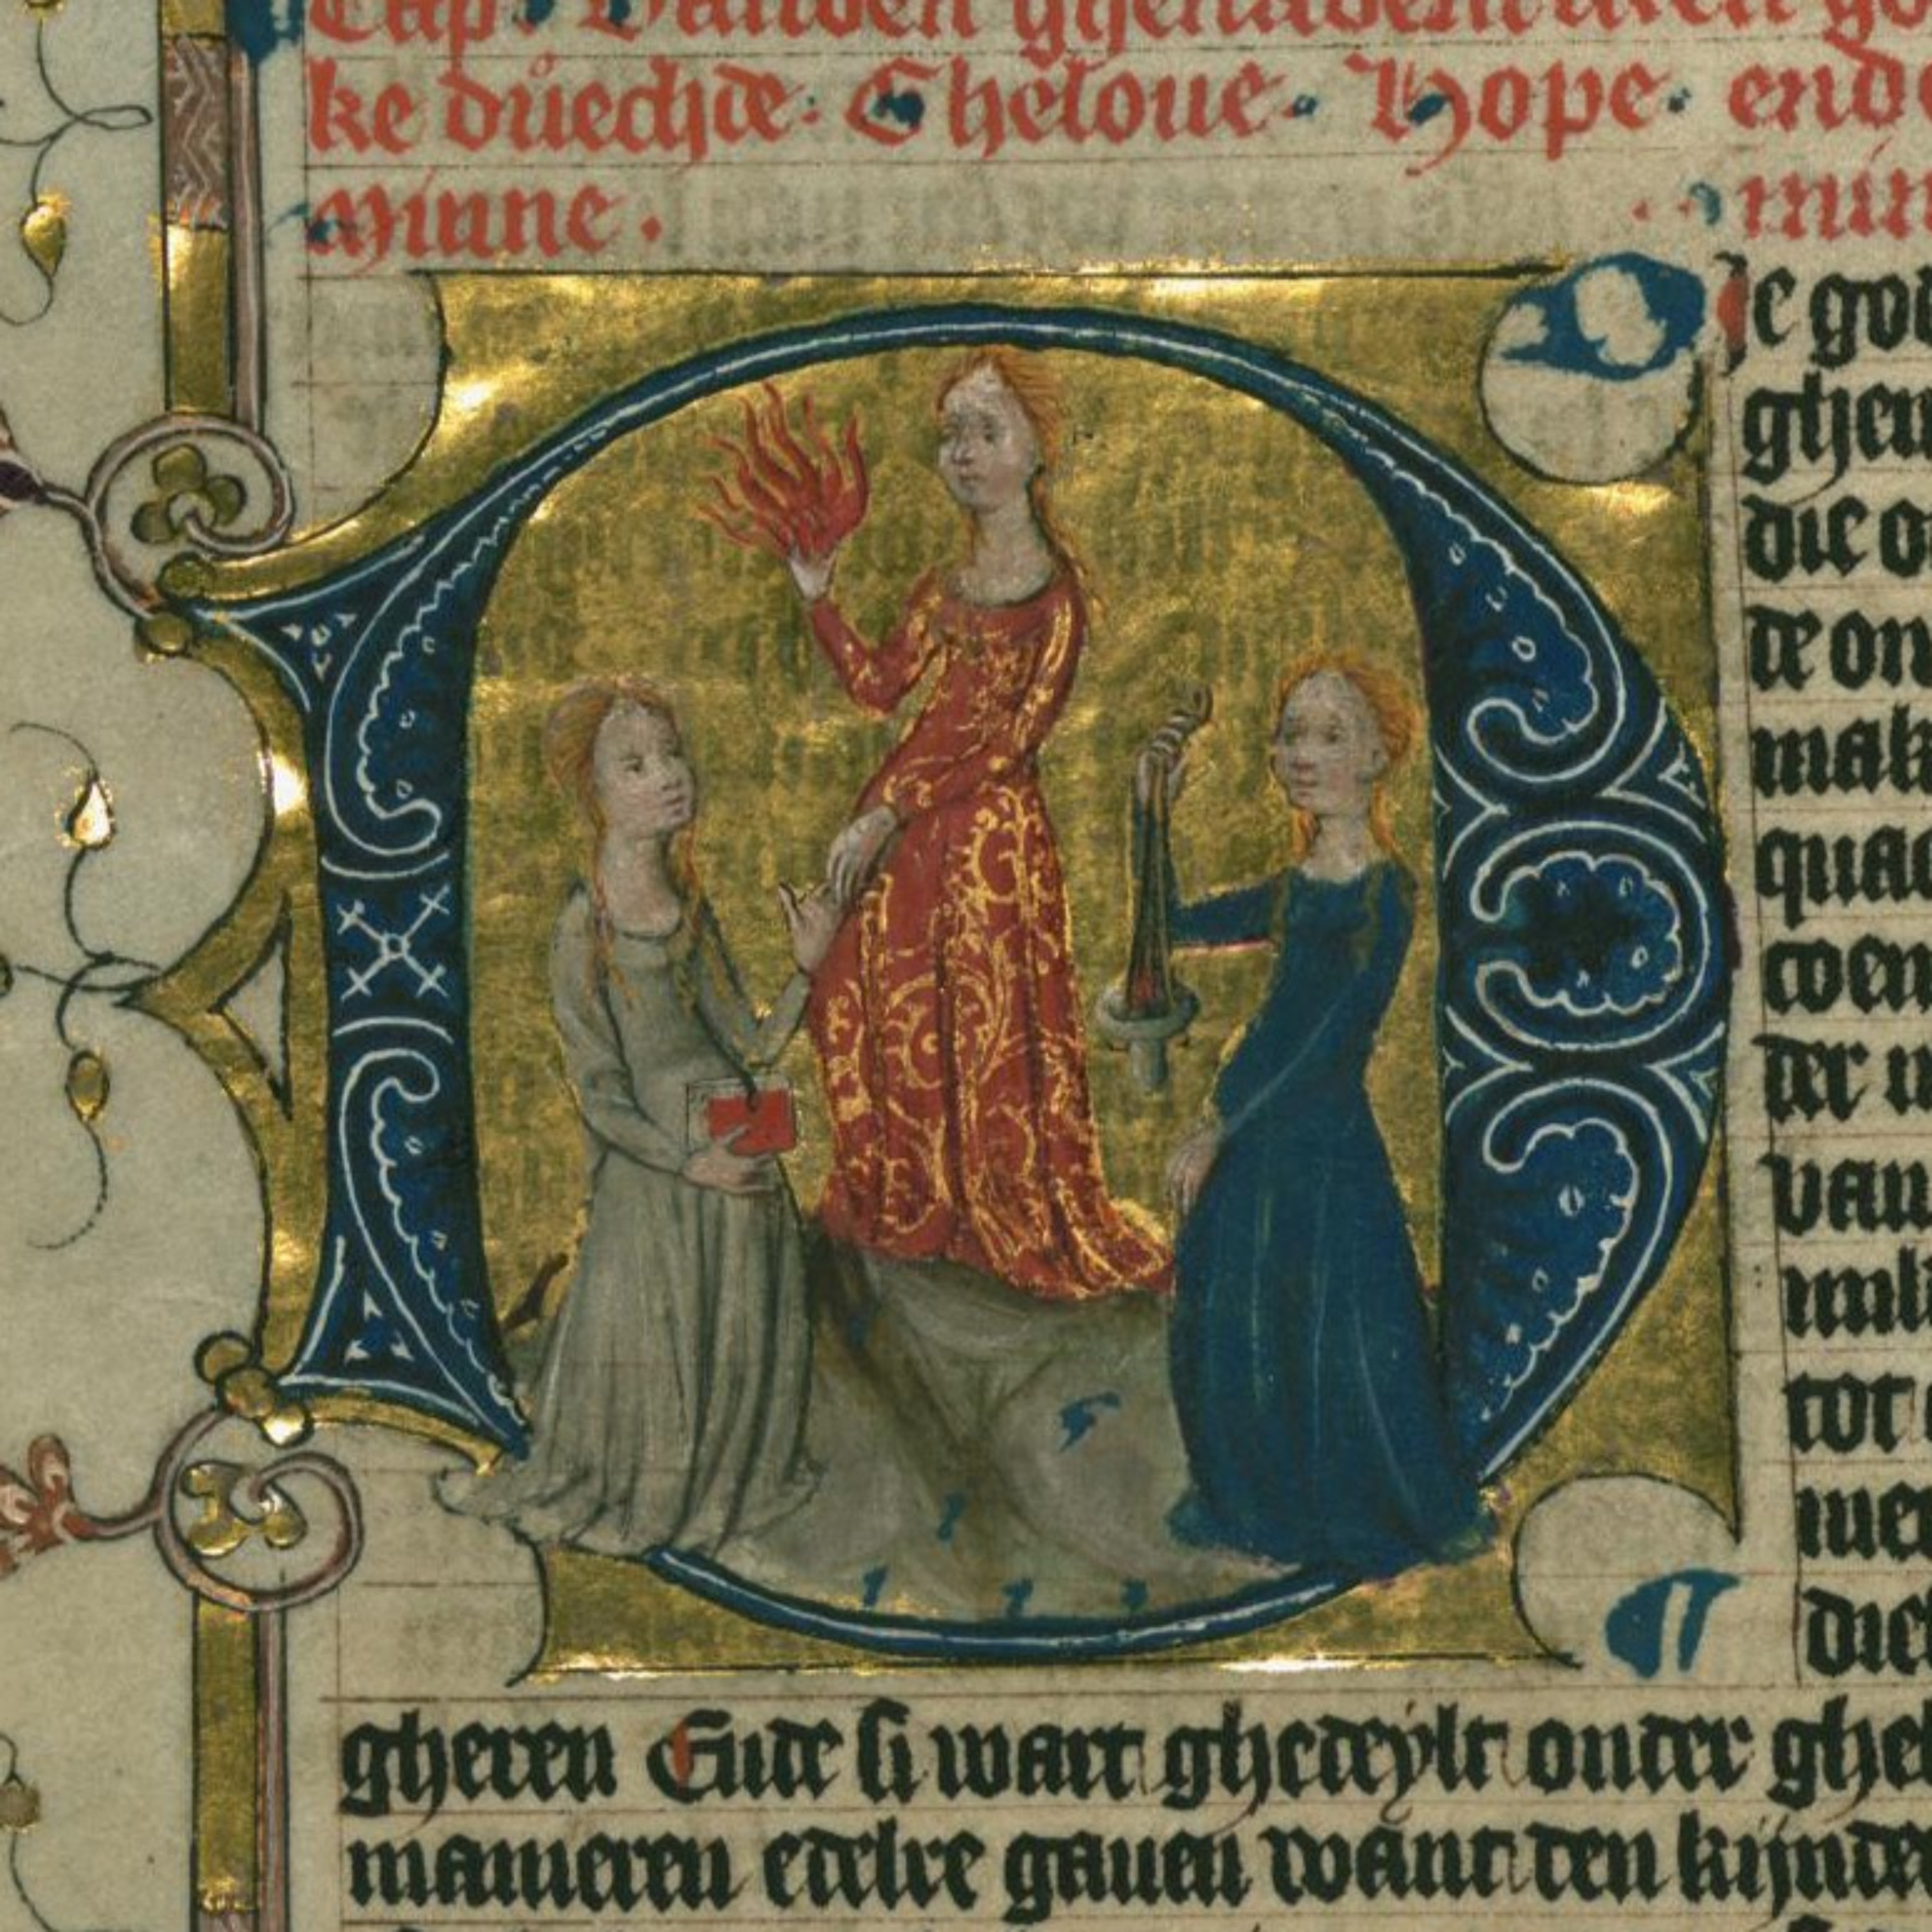 Cap. Vanden ghenadentliken go
ke duechde. Gheloue. Hope. ende
Minne.
min
ie god
ghen
die o
te on
mak
quad
coem
der m
van
tot
die
gheren Ende si wart ghedeylt onder ghe
manieren edelre gauen want den kijnde